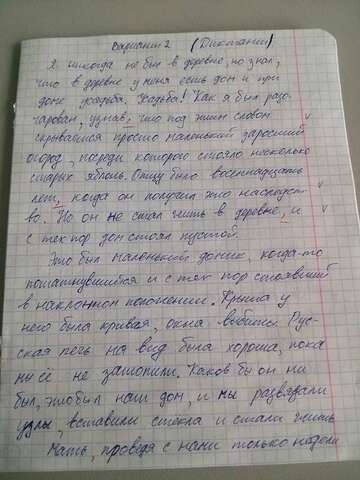 Вариант 2 (Диктант)
Я никогда не был в деревне, но знал,
что в деревне у меня есть дом и при
доме усадьба. Усадьба! Как я был разо-
чарован, узнав, что под этим словом
скрывается просто маленький заросший
огород, посреди которого стояло несколько
старых яблонь. Отцу было восемнадцать
лет, когда он получил это наследст-
во. Но он не стал жить в деревне, и
с тех пор дом стоял пустой.
Это был маленький домик, когда-то
пошатнувшийся и с тех пор стоявший
в наклонном положении. Крыша у
него была кривая, окна выбиты. Рус-
ская печь на вид была хороша, пока
мы её не затопили. Каков бы он ни
был, это был наш дом, и мы развязали
узлы, вставили стёкла и стали жить.
Мать, проведя с нами только недели